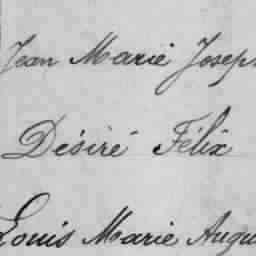 Jean Marie Josep
Désiré Félix
Louis Marie Augu